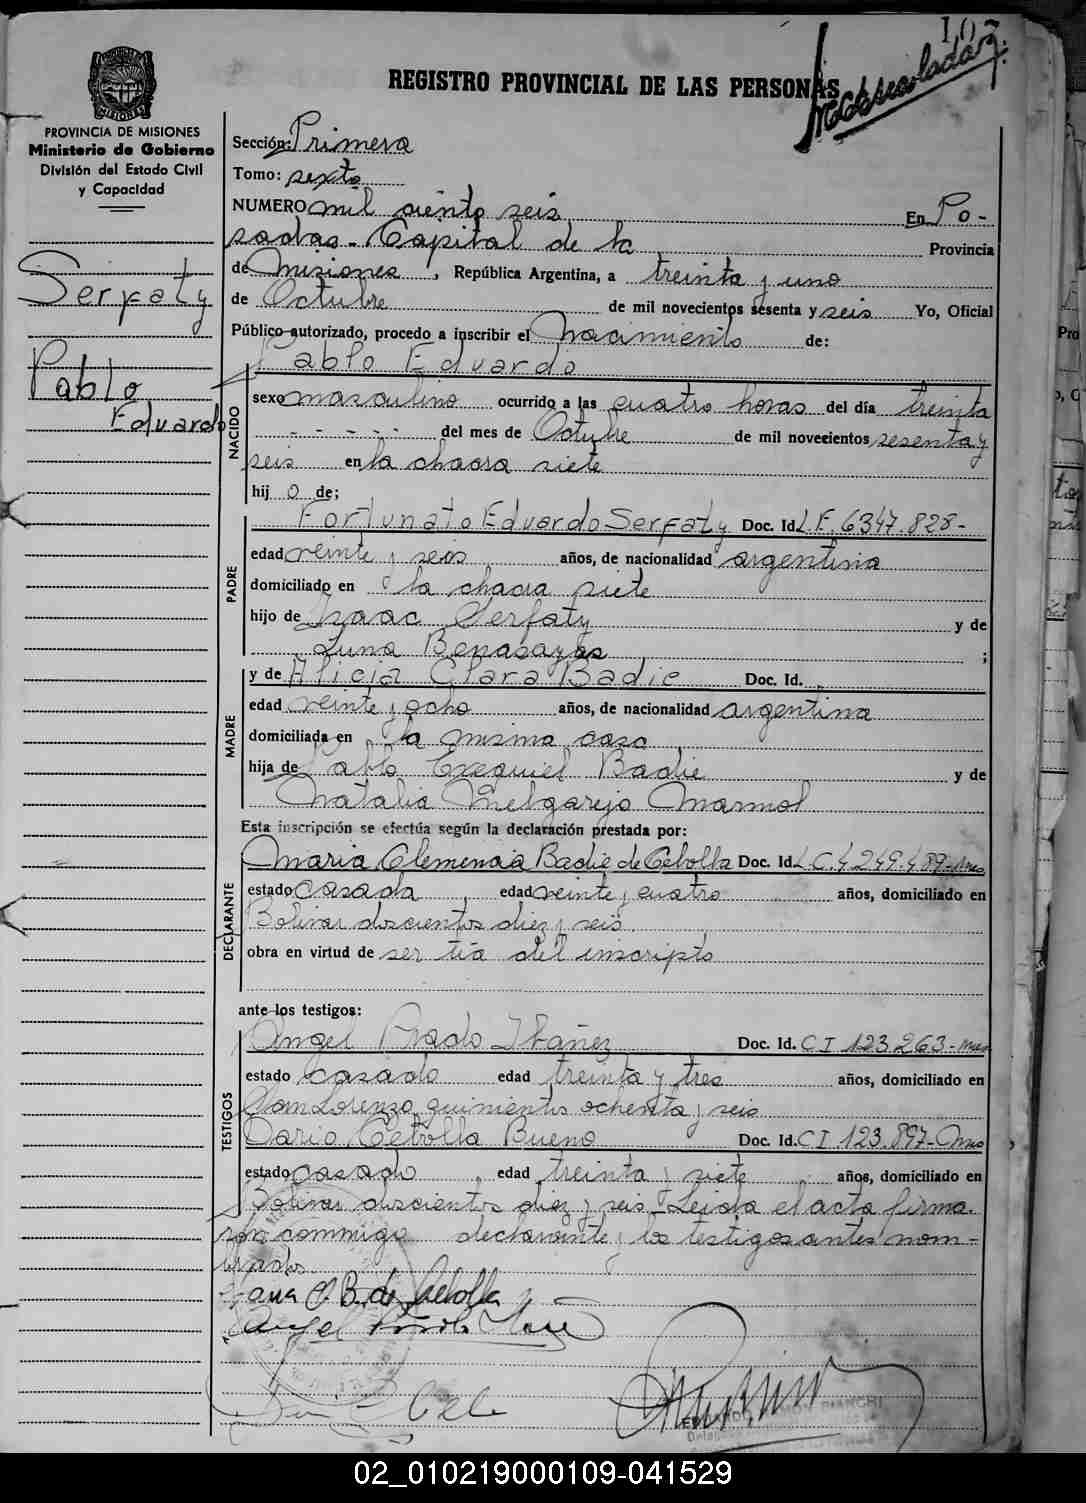 107
REGISTRO PROVINCIAL DE LAS PERSONAS
PROVINCIA DE MISIONES
Ministerio de Gobierno
División del Estado Civil
y Capacidad
Serfaty
Pablo
Eduardo
Sección: Primera
Tomo: sexto
NUMERO mil ciento seis En Po-
sadas - Capital de la Provincia
de Misiones, República Argentina, a treinta y uno
de Octubre de mil novecientos sesenta y seis Yo, Oficial
Público autorizado, procedo a inscribir el Nacimiento de:
Pablo Eduardo
NACIDO
sexo masculino ocurrido a las cuatro horas del día treinta
- - - - - del mes de Octubre de mil novecientos sesenta y
seis en la chacra siete
hij o de;
PADRE
Fortunato Eduardo Serfaty Doc. Id. L.E. 6347.828-
edad veinte y seis años, de nacionalidad argentina
domiciliado en la chacra siete
hijo de Isaac Serfaty y de
Luna Benasayas ;
MADRE
y de Alicia Clara Badie Doc. Id.
edad veinte y ocho años, de nacionalidad argentina
domiciliada en la misma casa
hija de Pablo Exequiel Badie y de
Natalia Melgarejo Marmol
Esta inscripción se efectúa según la declaración prestada por:
DECLARANTE
Maria Clemencia Badie de Cebolla Doc. Id. L.C. 4.249.489-Mnes
estado casada, edad veinte y cuatro años, domiciliado en
Bolivar doscientos diez y seis.
obra en virtud de ser tía del inscripto
ante los testigos:
TESTIGOS
Angel Prado Ibañez Doc. Id. CI 123.263-Mnes
estado casado edad treinta y tres años, domiciliado en
San Lorenzo quinientos ochenta y seis
Dario Cebolla Bueno Doc. Id. CI 123.897-Mnes
estado casado, edad treinta y siete años, domiciliado en
Bolivar doscientos diez y seis - Leida el acta firma-
ron conmigo declarante y los testigos antes nom-
brados.
C B. de Cebolla
Angel
BIANCHI
02_010219000109-041529